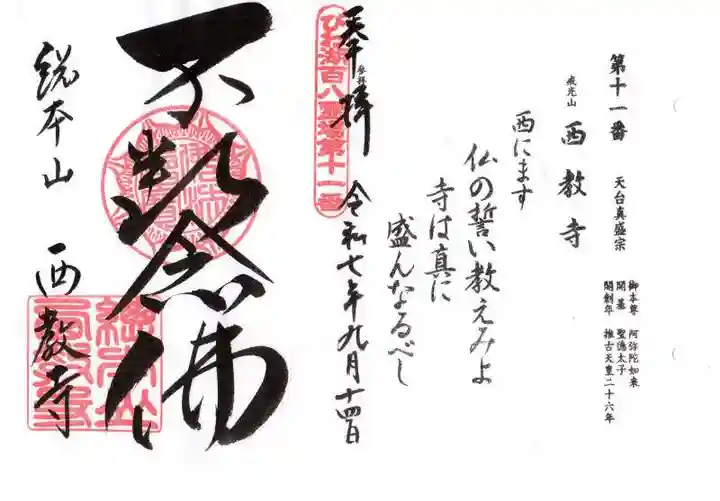 第十一番
天台真盛宗
戒光山 西教寺
御本尊 阿弥陀如来
開基 聖徳太子
開創年 推古天皇二十六年
西にます
仏の誓い教えみよ
寺は真に
盛んなるべし
びわ湖百八霊場第十一番
奉拝
参拝
令和七年九月十四日
不断念佛
総本山 西教寺